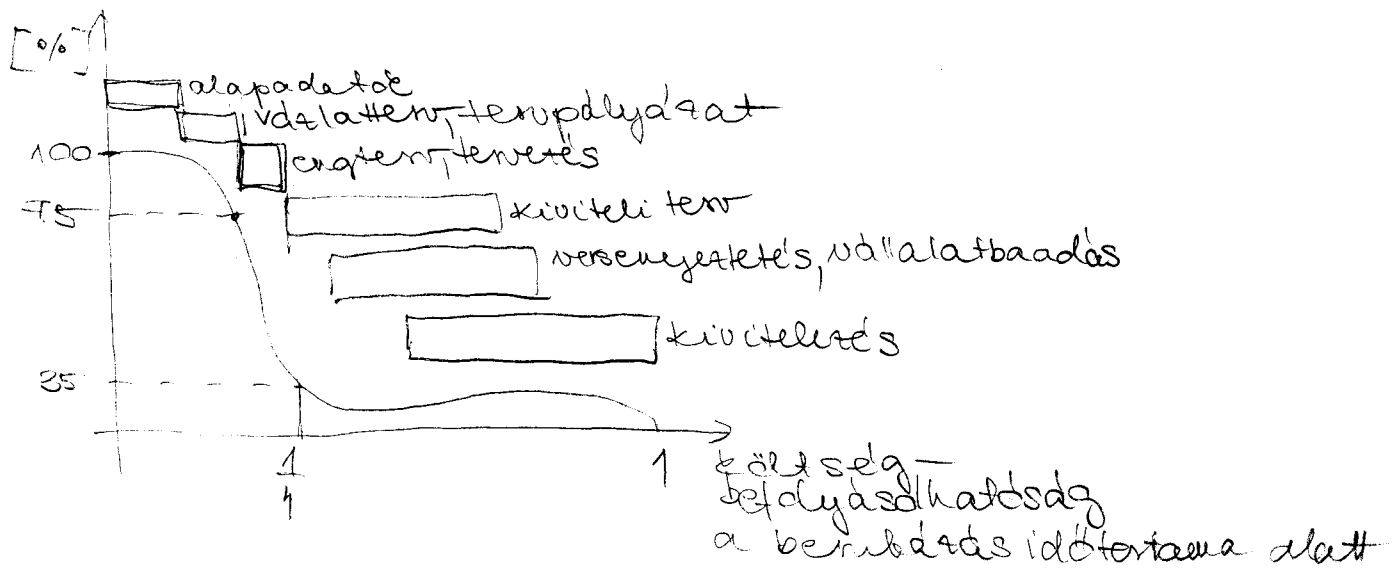 [%]
alapadatok
vázlatterv, tervpályázat
100
engterv, tervetés
75
kiviteli terv
versenyeztetés, vállalatbaadás
kivitelezés
35
1/4
1
költség-
befolyásolhatóság
a beruházás időtartama alatt